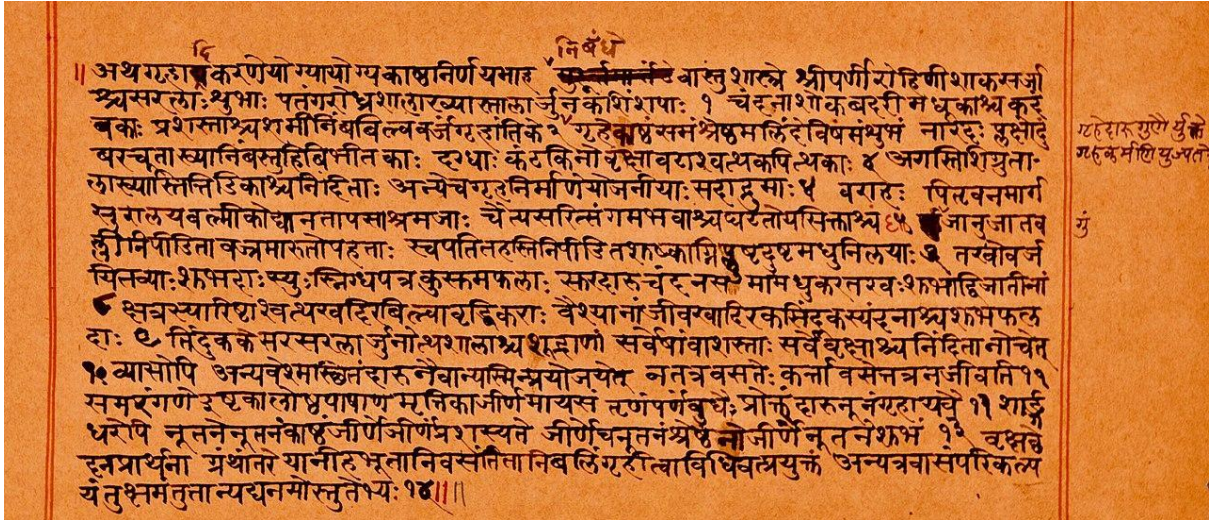 दि
निबंधे
॥ अथगृहादिकरणेयोग्यायोग्यकाष्ठनिर्णयमाह वास्तुशास्त्रे श्रीपर्णीरोहिणीशाकसर्जा
श्चसरलाः शुभाः पतंगरोध्रशालाख्यास्तालार्जुनकशिंशपाः १ चंदनाशोकबदरीमधूकाश्चकदं
बकाः प्रशस्ताश्चशमीनिंबबिल्ववर्जगृहांतिके २ श्रेष्ठमलिंदेविषमंशुभं नारदः प्लक्षोदुं
बरचूताख्यानिंबस्तुहिबिभीतकाः दग्धाः कंटकिनोवृक्षावटाश्वत्थकपित्थकाः ४ अगस्तिशिग्रुता
लाख्यास्तिंतिडिकाश्चनिंदिताः अन्येचगृहनिर्माणेयोजनीयाः सदाद्रुमाः ५ वराहः पितृवनमार्ग
सुरालयवल्मीकोद्यानतापसाश्रमजाः चैत्यसरित्संगमभवाश्चघटतोयसिक्ताश्च जानुजातव
ल्लीनिपीडितावज्रमारुतोपहताः स्वपतितहस्तिनिपीडितशुष्काग्निप्लुष्टदुष्टमधुनिलयाः ७ तरवोवर्ज
यितव्याः शुभदाः स्युः स्निग्धपत्रकुसुमफलाः सुरदारुचंदनसमीमधुकतरवः शुभाद्विजातीनां
८ क्षत्रस्यारिष्टाश्वत्थखदिरबिल्वावृद्धिकराः वैश्यानांजीवखादिरकसिंदुकस्यंदनाश्चशुभफल
दाः ९ तिंदुककेसरसरलार्जुनोत्थशालाश्चशूद्राणां सर्वेषांवाशस्ताः सर्वेवृक्षाश्चनिंदितानोचेत्
१० व्यासोपि अन्यवेश्मस्थितंदारुनैवान्यस्मिन्प्रयोजयेत् नतत्रवसतेः कर्त्तावसेत्तत्रनजीवति ११
समरंगणे मृत्तिकाजीर्णमायसं तृणंपर्णंबुधैः प्रोक्तंदारुनूनंगृहायवै १२ शार्ङ्ग
धरोपि नूतनेनूतनंकाष्ठंजीर्णेजीर्णंप्रशस्यते जीर्णेचनूतनंश्रेष्ठंनोजीर्णंनूतनेशुभं १३ वृक्षछे
दनप्रार्थना ग्रंथांतरे यानीहभूतानिवसंतितानिबलिंगृहीत्वाविधिवत्प्रयुक्तं अन्यत्रवासंपरिकल्प
यंतुक्षमंतुतान्यद्यनमोस्तुतेभ्यः १४॥॥
गुं